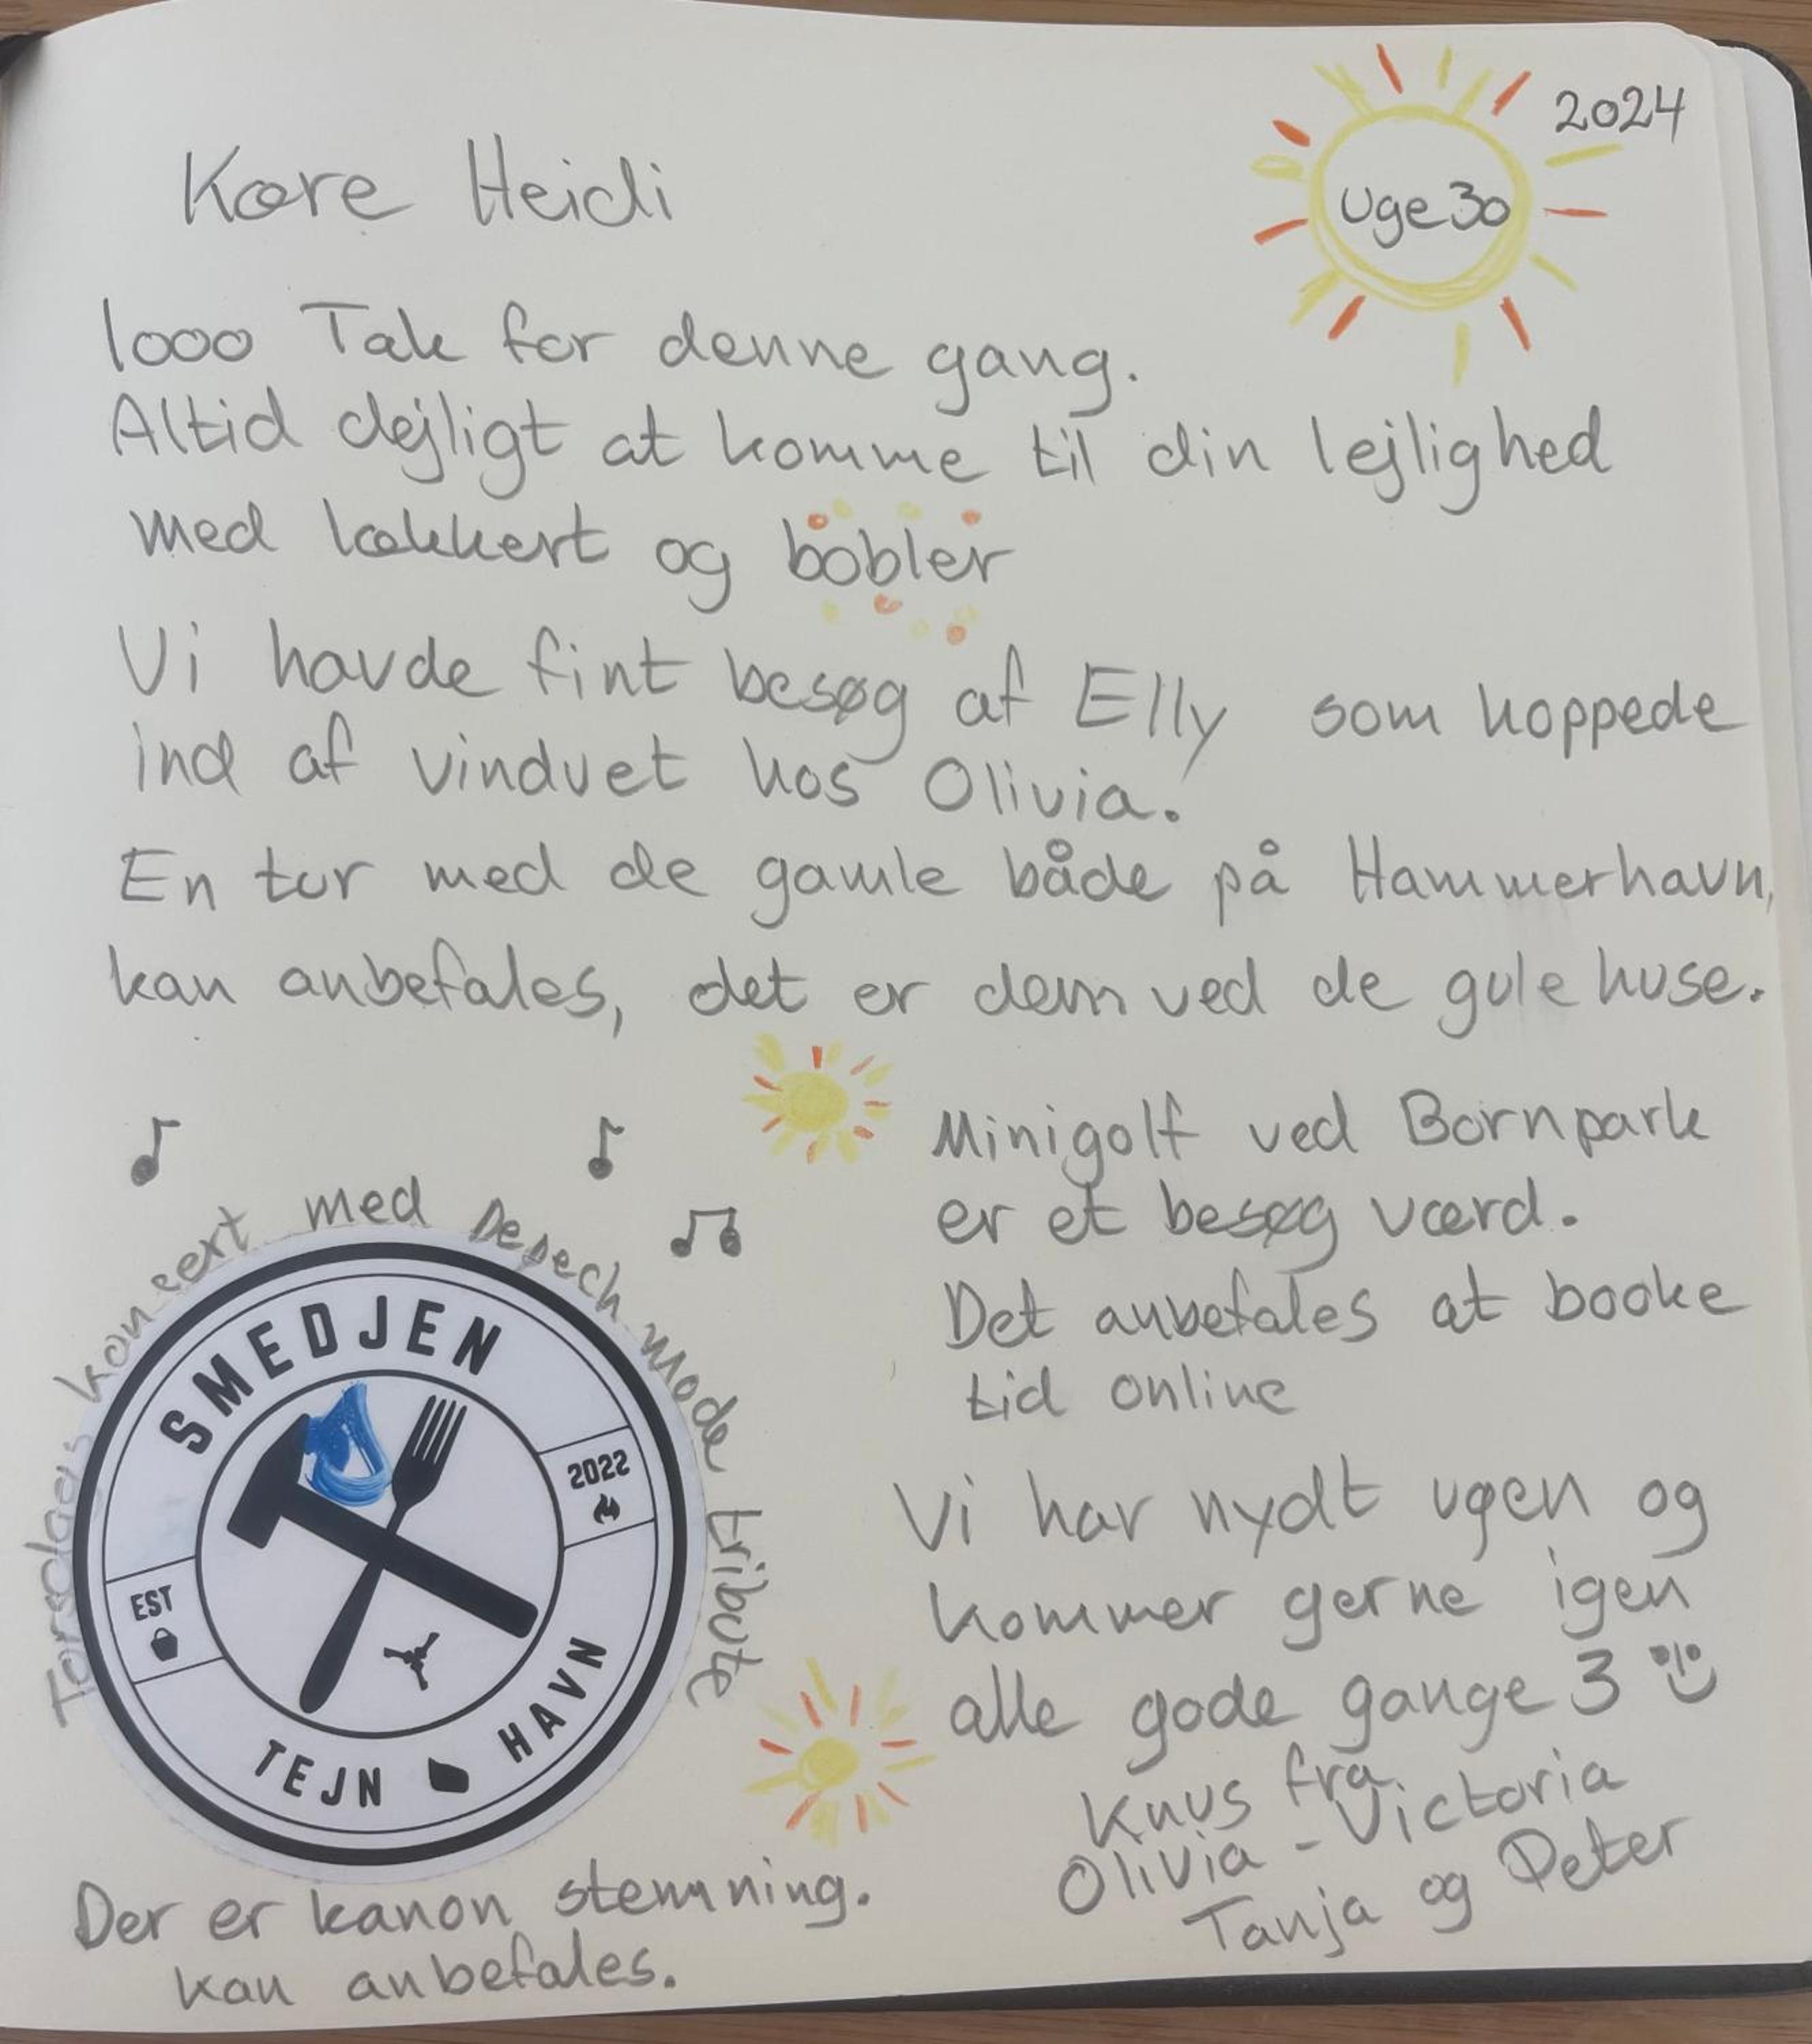 2024
Uge 30
Kære Heidi
1000 Tak for denne gang.
Altid dejligt at komme til din lejlighed
med lækkert og bobler
Vi havde fint besøg af Elly som hoppede
ind af vinduet hos Olivia!
En tur med de gamle både på Hammerhavn,
kan anbefales, det er dem ved de gule huse.
Minigolf ved Bornpark
er et besøg værd.
Det anbefales at booke
tid online
Torsdags koncert med Depech Mode tribute
SMEDJEN
2022
EST
TEJN HAVN
Der er kanon stemning.
kan anbefales.
Vi har nydt ugen og
kommer gerne igen
alle gode gange 3
Knus fra
Olivia - Victoria
Tanja og Peter